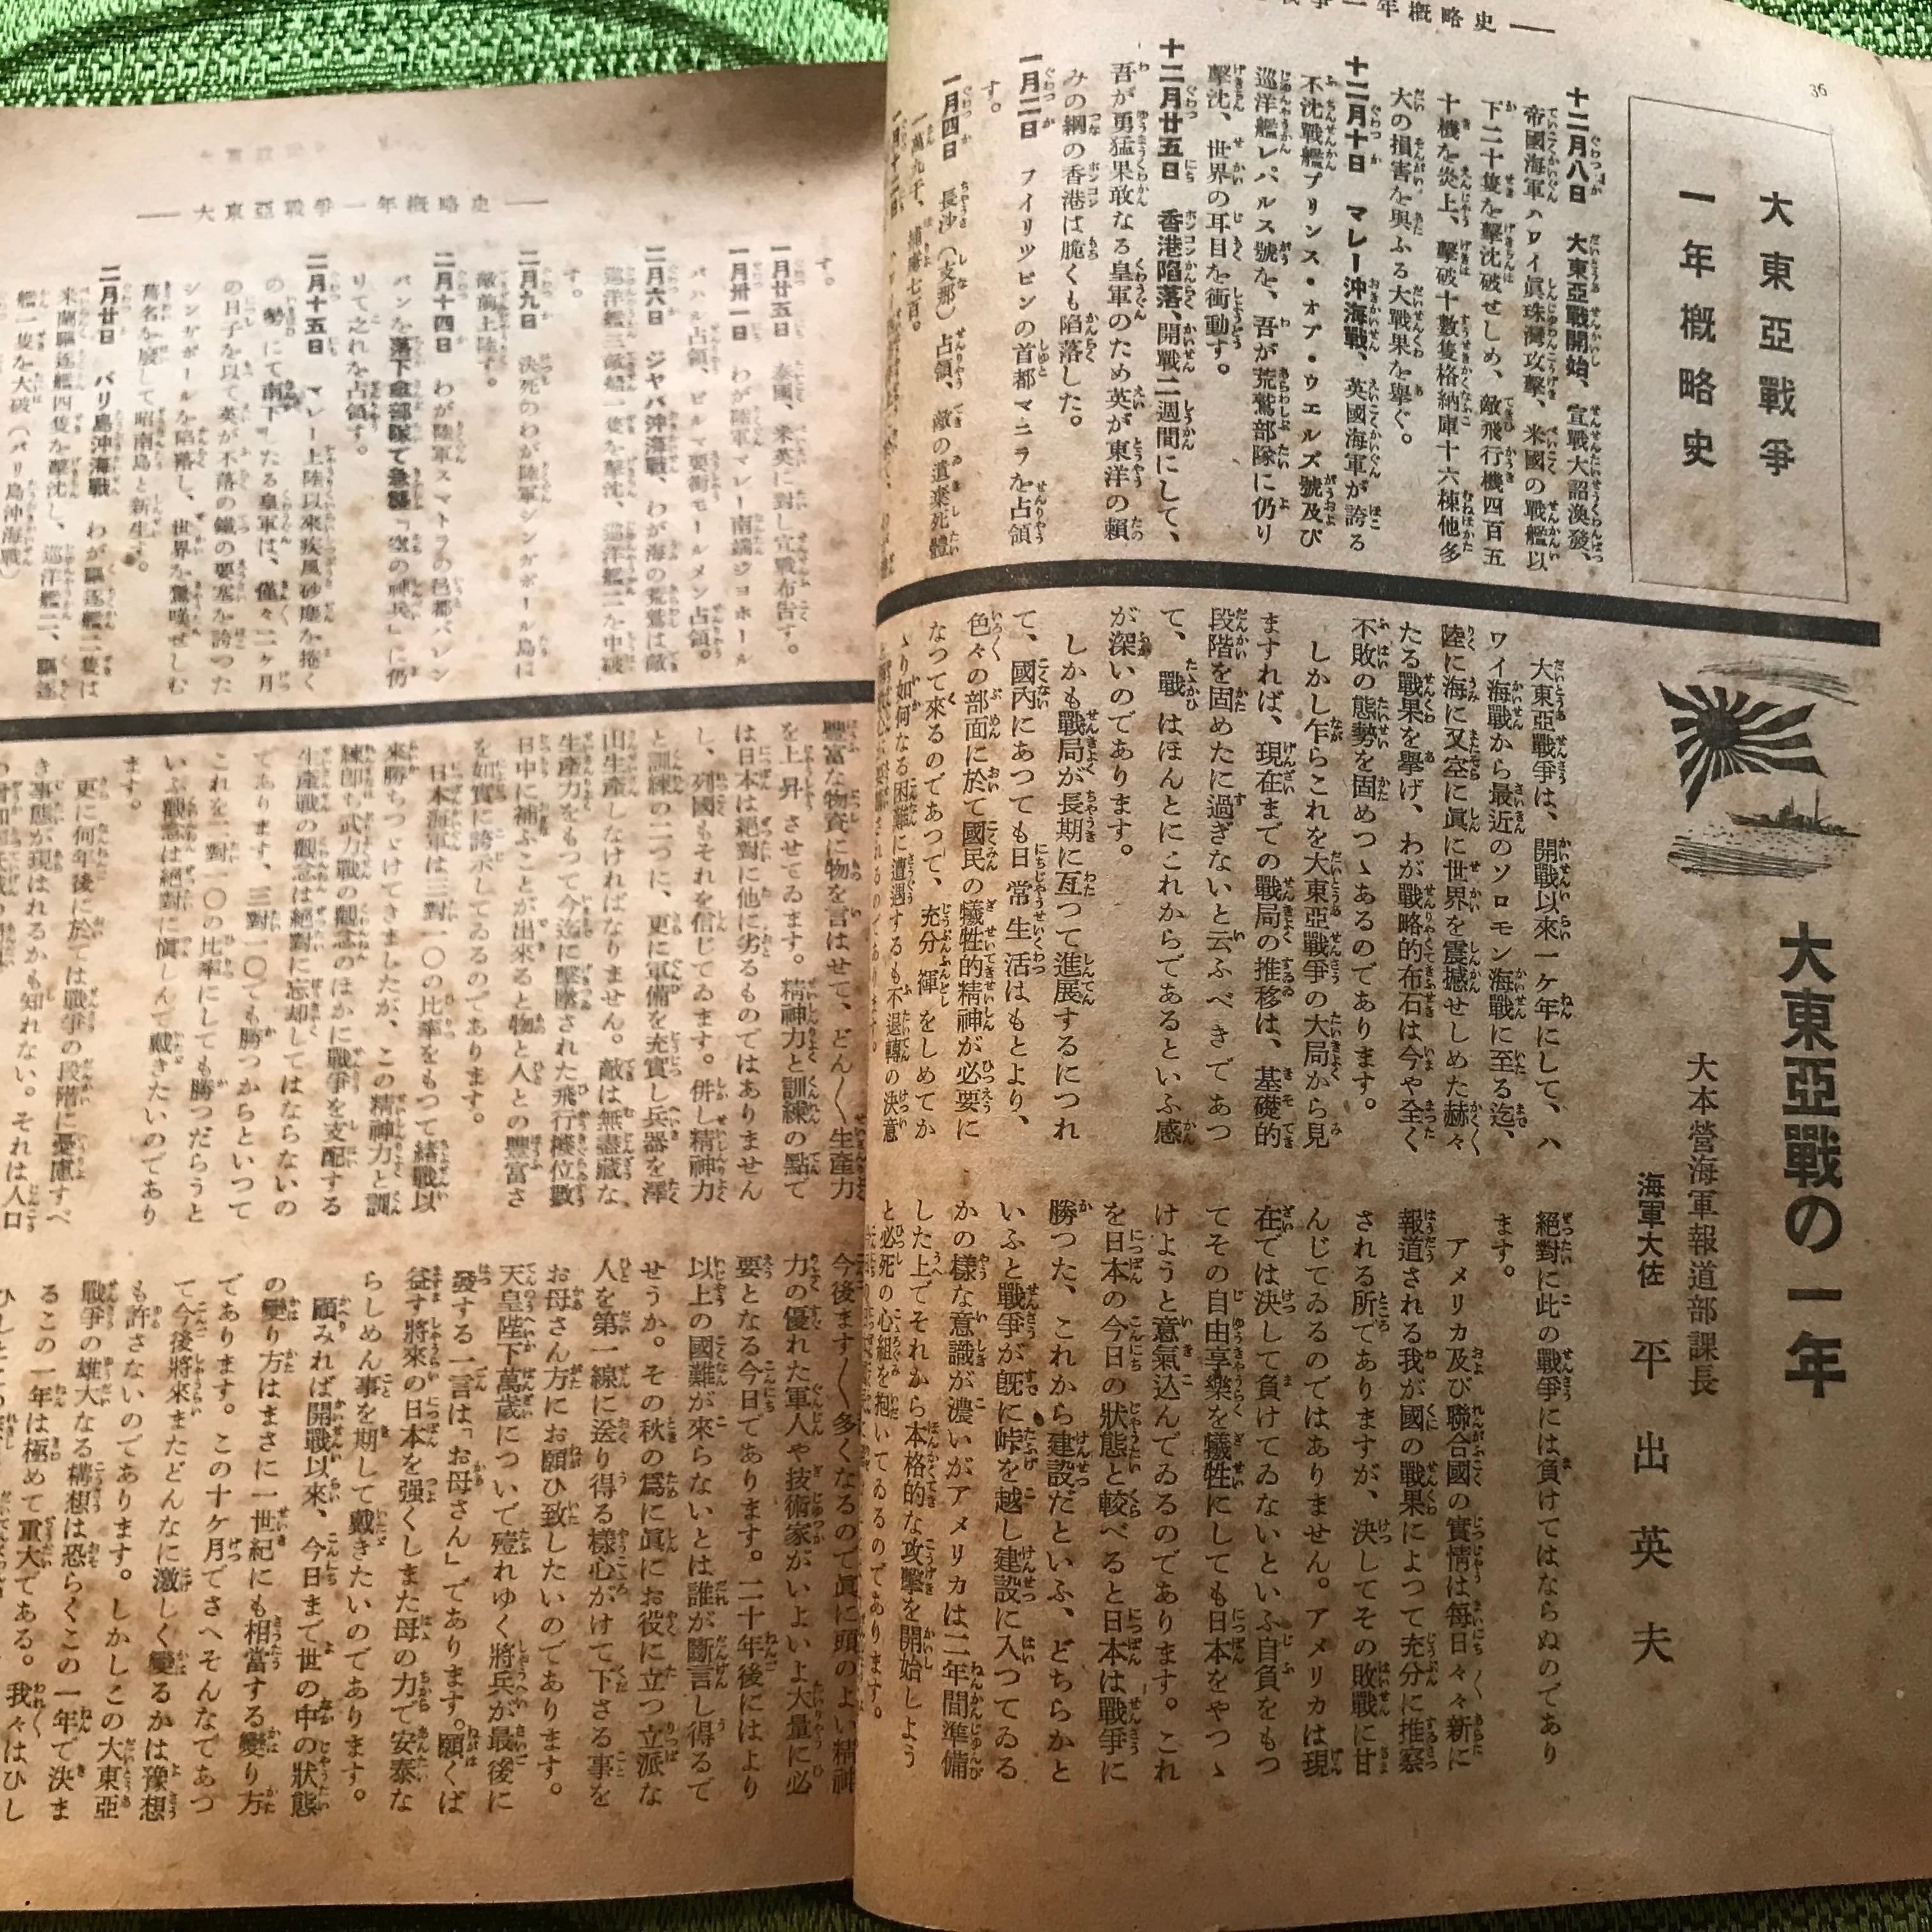 36
大東亞戰爭
一年概略史
十二月八日 大東亞戰開始、宣戰大詔渙發、
帝國海軍ハワイ眞珠灣攻擊、米國の戰艦以
下二十隻を擊沈破せしめ、敵飛行機四百五
十機を炎上、擊破十數隻格納庫十六棟他多
大の損害を與ふる大戰果を擧ぐ。
十二月十日 マレー沖海戰、英國海軍が誇る
不沈戰艦プリンス・オブ・ウエルズ號及び
巡洋艦レパルス號を、吾が荒鷲部隊に仍り
擊沈、世界の耳目を衝動す。
十二月廿五日 香港陷落、開戰二週間にして、
吾が勇猛果敢なる皇軍のため英が東洋の賴
みの綱の香港は脆くも陷落した。
一月二日 フイリツピンの首都マニラを占領
す。
一月四日 長沙(支那)占領、敵の遺棄死體
大東亞戰の一年
大本營海軍報道部課長
海軍大佐 平出英夫
大東亞戰爭は、開戰以來一ケ年にして、ハ
ワイ海戰から最近のソロモン海戰に至る迄、
陸に海に又空に眞に世界を震撼せしめた赫々
たる戰果を擧げ、わが戰略的布石は今や全く
不敗の態勢を固めつゝあるのであります。
しかし乍らこれを大東亞戰爭の大局から見
ますれば、現在までの戰局の推移は、基礎的
段階を固めたに過ぎないと云ふべきであつ
て、戰はほんとにこれからであるといふ感
が深いのであります。
しかも戰局が長期に亙つて進展するにつれ
て、國內にあつても日常生活はもとより、
色々の部面に於て國民の犧牲的精神が必要に
なつて來るのであつて、充分褌をしめてか
ゝり如何なる困難に遭遇するも不退轉の決意
絕對に此の戰爭には負けてはならぬのであり
ます。
アメリカ及び聯合國の實情は每日々々新に
報道される我が國の戰果によつて充分に推察
される所でありますが、決してその敗戰に甘
んじてゐるのではありません。アメリカは現
在では決して負けてゐないといふ自負をもつ
てその自由享樂を犧牲にしても日本をやつゝ
けようと意氣込んでゐるのであります。これ
を日本の今日の狀態と較べると日本は戰爭に
勝つた、これから建設だといふ、どちらかと
いふと戰爭が旣に峠を越し建設に入つてゐる
かの樣な意識が濃いがアメリカは二年間準備
した上でそれから本格的な攻擊を開始しよう
と必死の心組を抱いてゐるのであります。
―大東亞戰爭一年概略史―
す。
一月廿五日 泰國、米英に對し宣戰布告す。
一月卅一日 わが陸軍マレー南端ジヨホール
バハル占領、ビルマ要衝モールメン占領。
二月六日 ジヤバ沖海戰、わが海の荒鷲は敵
巡洋艦三敵船一隻を擊沈、巡洋艦二を中破
す。
二月九日 決死のわが陸軍シンガポール島に
敵前上陸す。
二月十四日 わが陸軍スマトラの邑都パレン
バンを落下傘部隊で急襲「空の神兵」に仍
りて之れを占領す。
二月十五日 マレー上陸以來疾風砂塵を捲く
の勢にて南下したる皇軍は、僅々二ケ月
の日子を以て英が不落の鐵の要塞を誇つた
シンガポールを陷落し、世界を驚嘆せしむ
二月廿日 バリ島沖海戰 わが驅逐艦二隻は
米蘭驅逐艦四隻を擊沈し、巡洋艦二、驅逐
艦一隻を大破(バリ島沖海戰)
豐富な物資に物を言はせて、どん〱生產力
を上昇させてゐます。精神力と訓練の點で
は日本は絕對に他に劣るものではありません
し、列國もそれを信じてゐます。併し精神力
と訓練の二つに、更に軍備を充實し兵器を澤
山生產しなければなりません。敵は無盡藏な
生產力をもつて今迄に擊墜された飛行機位數
日中に補ふことが出來ると物と人との豐富さ
を如實に誇示してゐるのであります。
日本海軍は三對一〇の比率をもつて緖戰以
來勝ちつゞけてきましたが、この精神力と訓
練卽ち武力戰の觀念のほかに戰爭を支配する
生產戰の觀念は絕對に忘却してはならないの
であります、三對一〇でも勝つからといつて
これを一對一〇の比率にしても勝つだらうと
いふ觀念は絕對に愼しんで戴きたいのであり
ます。
更に何年後に於ては戰爭の段階に憂慮すべ
き事態が現はれるかも知れない。それは人口
今後ます〱多くなるので眞に頭のよい精神
力の優れた軍人や技術家がいよいよ大量に必
要となる今日であります。二十年後にはより
以上の國難が來らないとは誰が斷言し得るで
せうか。その秋の爲に眞にお役に立つ立派な
人を第一線に送り得る樣心がけて下さる事を
お母さん方にお願ひ致したいのであります。
天皇陛下萬歲についで殪れゆく將兵が最後に
發する一言は「お母さん」であります。願くば
益す將來の日本を强くしまた母の力で安泰な
らしめん事を期して戴きたいのであります。
顧みれば開戰以來、今日まで世の中の狀態
の變り方はまさに一世紀にも相當する變り方
であります。この十ケ月でさへそんなであつ
て今後將來またどんなに激しく變るかは豫想
も許さないのであります。しかしこの大東亞
戰爭の雄大なる構想は恐らくこの一年で決ま
るこの一年は極めて重大である。我々はひし